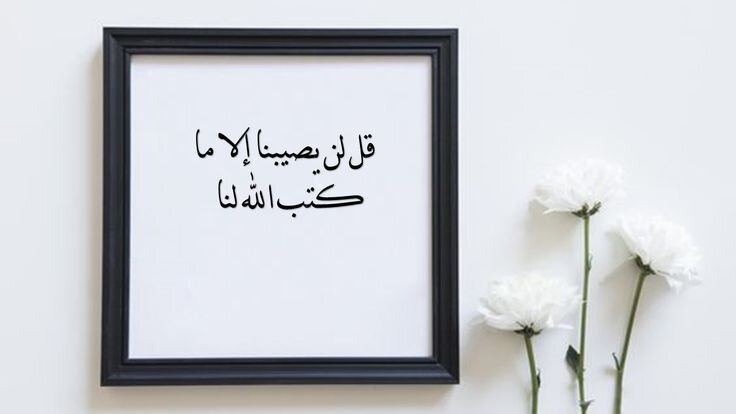 قل لن يصيبنا إلا ما
كتب الله لنا